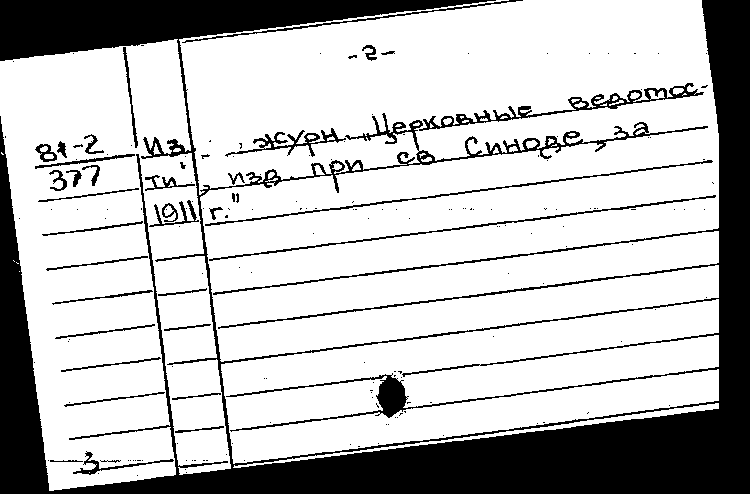 -2-
81-2 Из журн. „Церковные ведомос-
377 ти", изд. при св Синоде, за
1911 г."
3